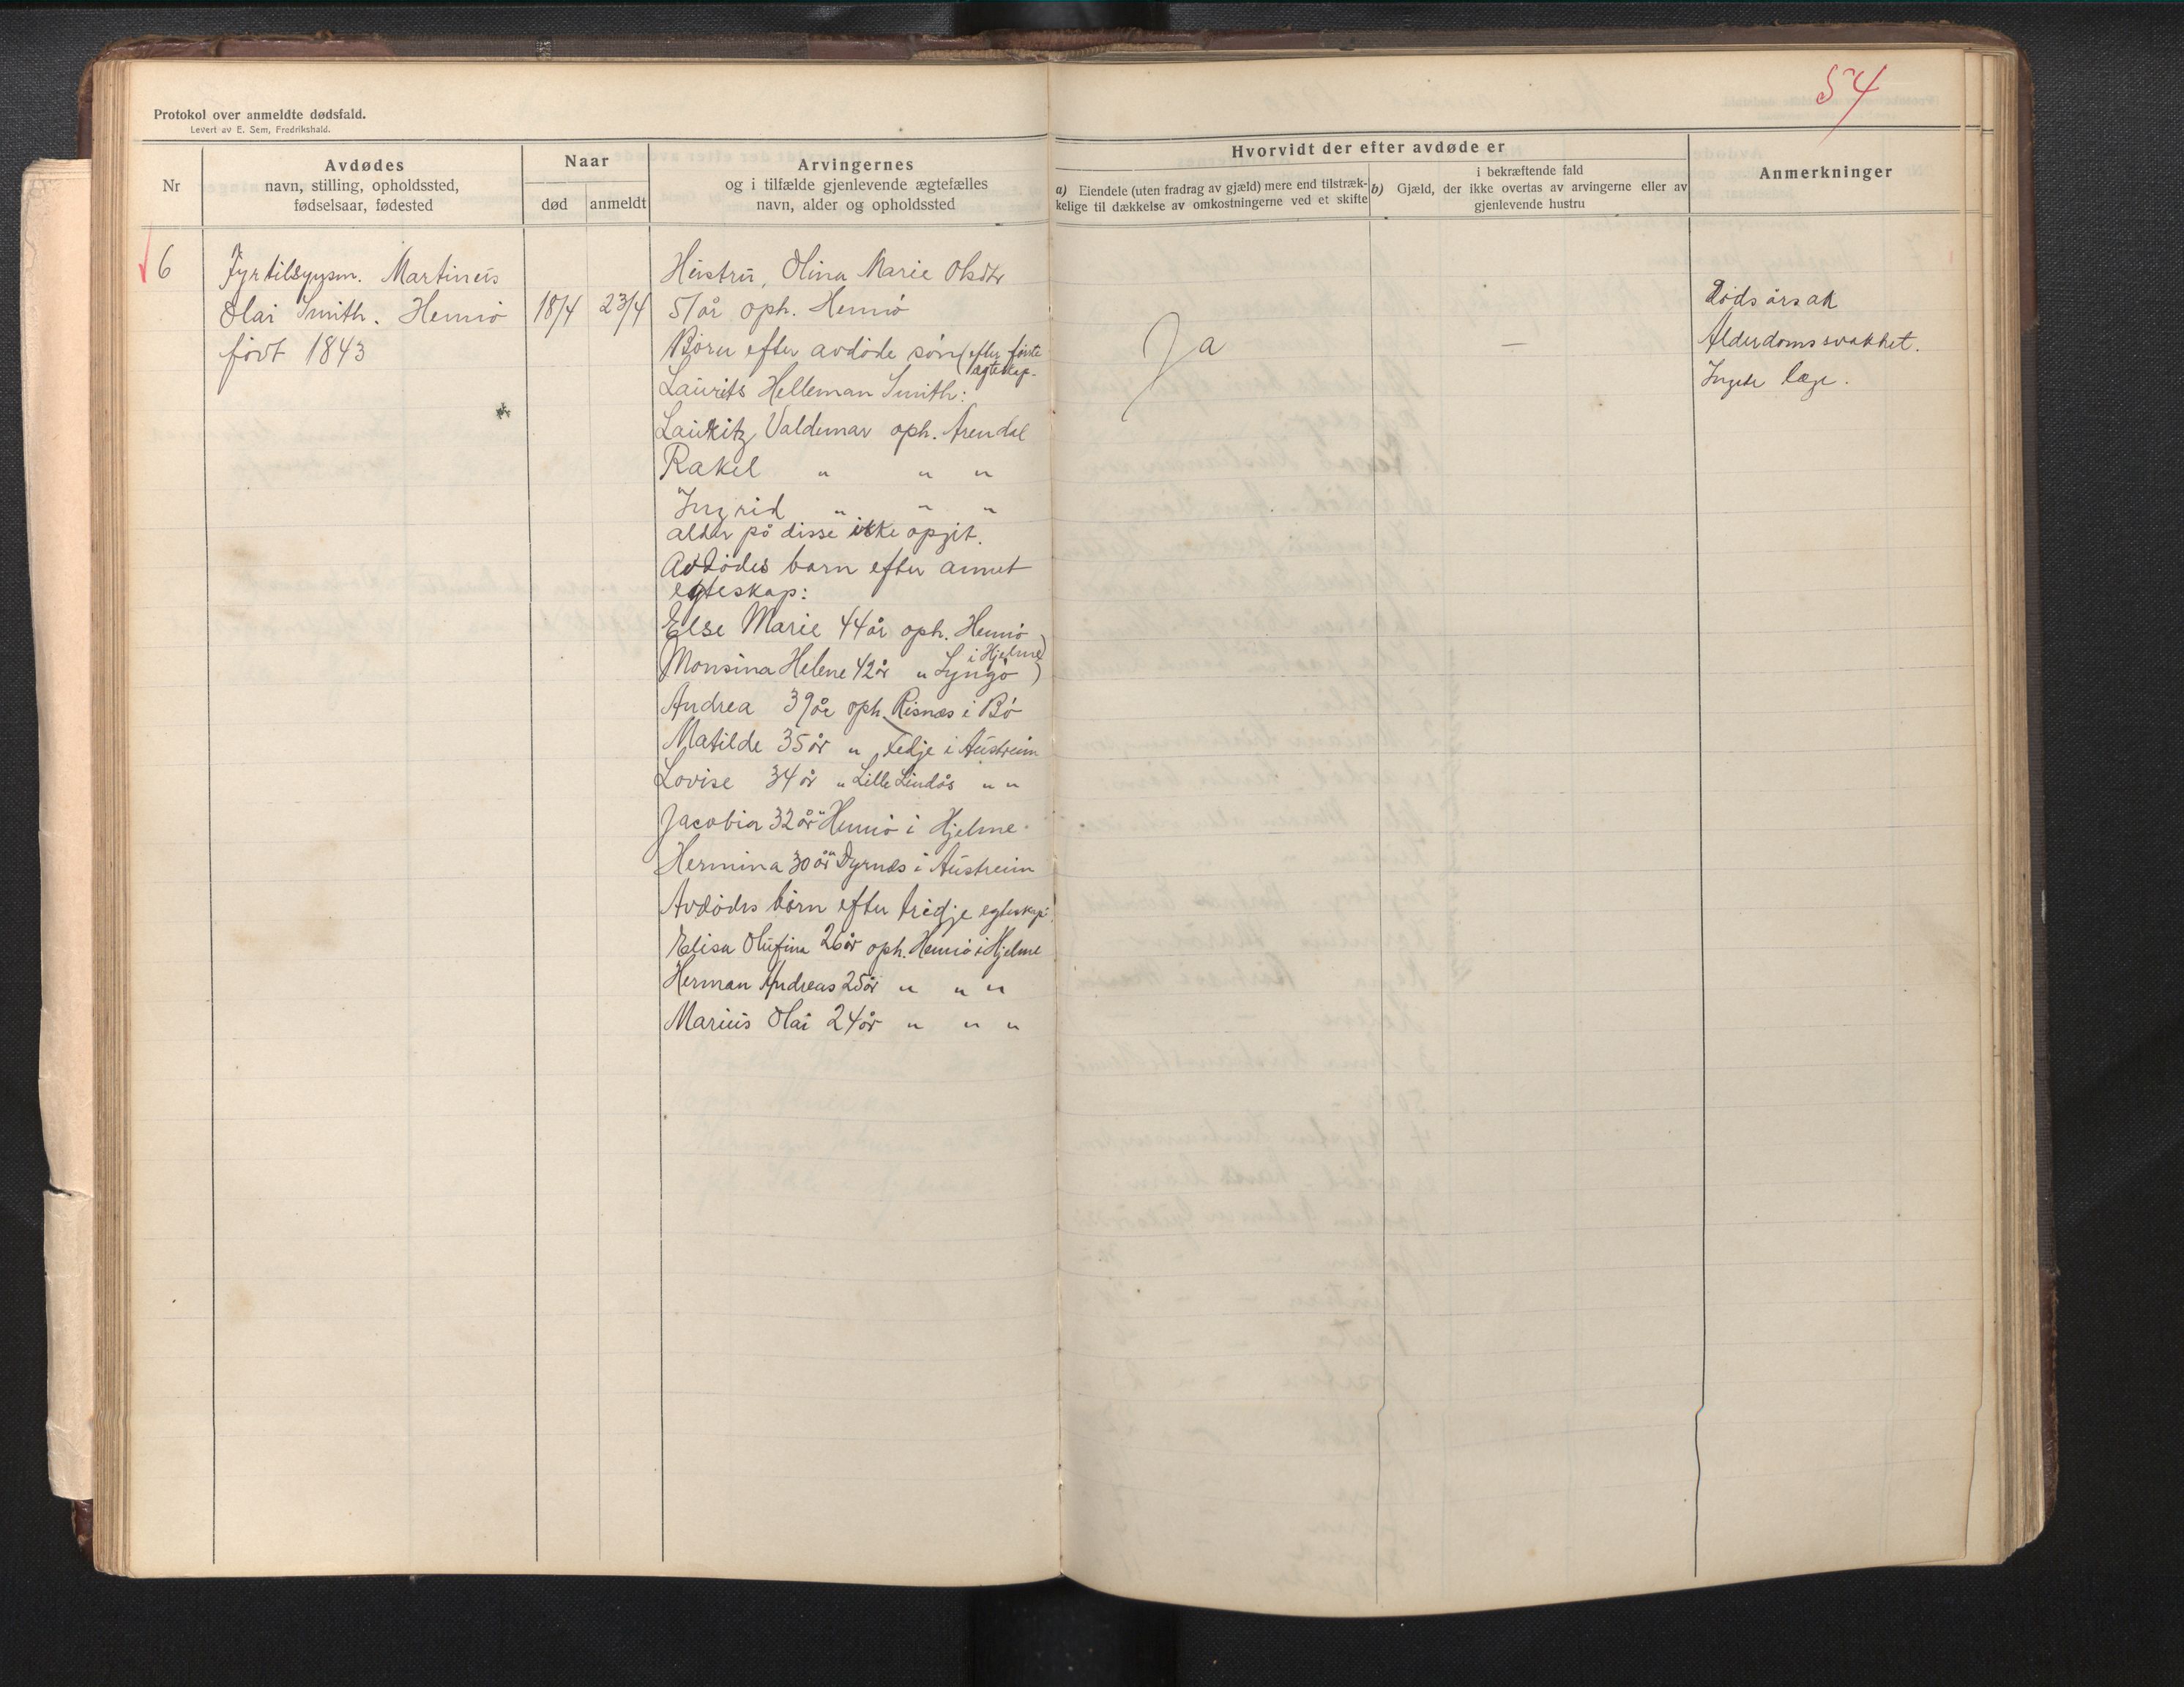 54
Protokol over anmeldte dødsfald.
Levert av E. Sem, Fredrikshald.
Nr
Avdødes
navn, stilling, opholdssted,
fødselsaar, fødested
Naar
død
anmeldt
Arvingernes
og i tilfælde gjenlevende ægtefælles
navn, alder og opholdssted
Hvorvidt der efter avdøde er
a) Eiendele (uten fradrag av gjæld) mere end tilstræk-
kelige til dækkelse av omkostningerne ved et skifte
i bekræftende fald
b) Gjæld, der ikke overtas av arvingerne eller av
gjenlevende hustru
Anmerkninger
6
Fyrtilsynsm. Martineus
Olai Smith. Hennö
født 1843
18/4
23/4
Hustru, Olina Marie Olsdtr
51 år oph. Hennö
Børn efter avdøde søn (efter første
ægteskap.
Laurits Helleman Smith:
Lauritz Valdemar oph. Arendal
Rakel " " "
Ingrid " " "
alder på disse ikke opgit.
Avdødes barn efter annet
egteskap:
Else Marie 44 år oph. Hennö
Monsina Helene 42 år " Lyngö ) i Hjelme
Andrea 39 år oph. Risnæs i Bö
Matilde 35 år " Fedje i Austreim
Lovise 34 år " Lille Lindås " "
Jacobia 32 år " Hennö i Hjelme.
Hermina 30 år " Dyrnæs i Austreim
Avdødes børn efter tredje egteskap:
Elisa Olufina 26 år oph. Hennö i Hjelme
Herman Andreas 25 år " " "
Marius Olai 24 år " " "
Ja
—
Dødsårsak
Alderdomssvakhet.
Ingen læge.